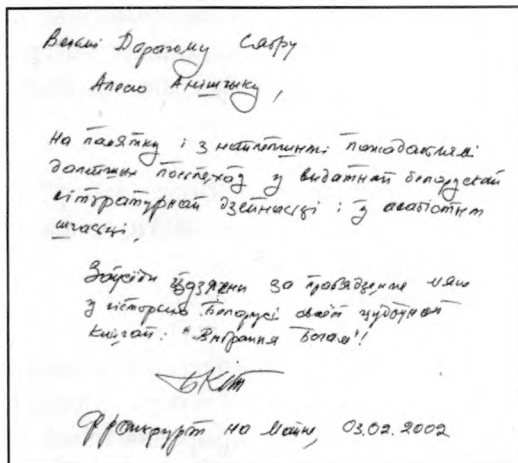 Вельмі Дарагому Сябру
Алесю Анішчыку,
На памятку і з найлепшымі пажаданнямі
далейшых поспехаў у выдатнай беларускай
літаратурнай дзейнасці і ў асабістым
шчасці,
Заўсёды ўдзячны за правядзенне мяне
у гісторыю Беларусі сваёй цудоўнай
кнігай: "Выбраныя Богам"!
БКіт
Франкфурт на Майне, 03.02.2002